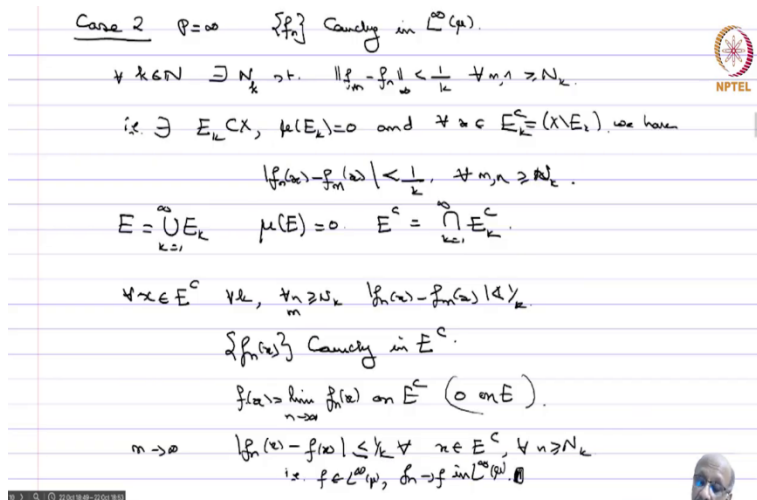 Case 2 P=∞ {fn} Cauchy in L^∞(μ).
∀ k∈N ∃ N_k s.t. ‖f_m - f_n‖_∞ < 1/k ∀ m,n ≥ N_k.
NPTEL
i.e. ∃ E_k ⊂ X, μ(E_k)=0 and ∀ x∈ E_k^c = (X\E_k) we have
|f_n(x) - f_m(x)| < 1/k, ∀ m,n ≥ N_k.
E = ∪_{k=1}^∞ E_k μ(E)=0. E^c = ∩_{k=1}^∞ E_k^c.
∀ x∈E^c ∀k, ∀ n,m ≥ N_k |f_n(x) - f_m(x)| < 1/k.
{f_n(x)} Cauchy in E^c.
f(x) = lim_{n→∞} f_n(x) on E^c (0 on E).
m→∞ |f_n(x) - f(x)| ≤ 1/k ∀ x∈E^c, ∀ n ≥ N_k
i.e. f∈L^∞(μ), f_n → f in L^∞(μ).